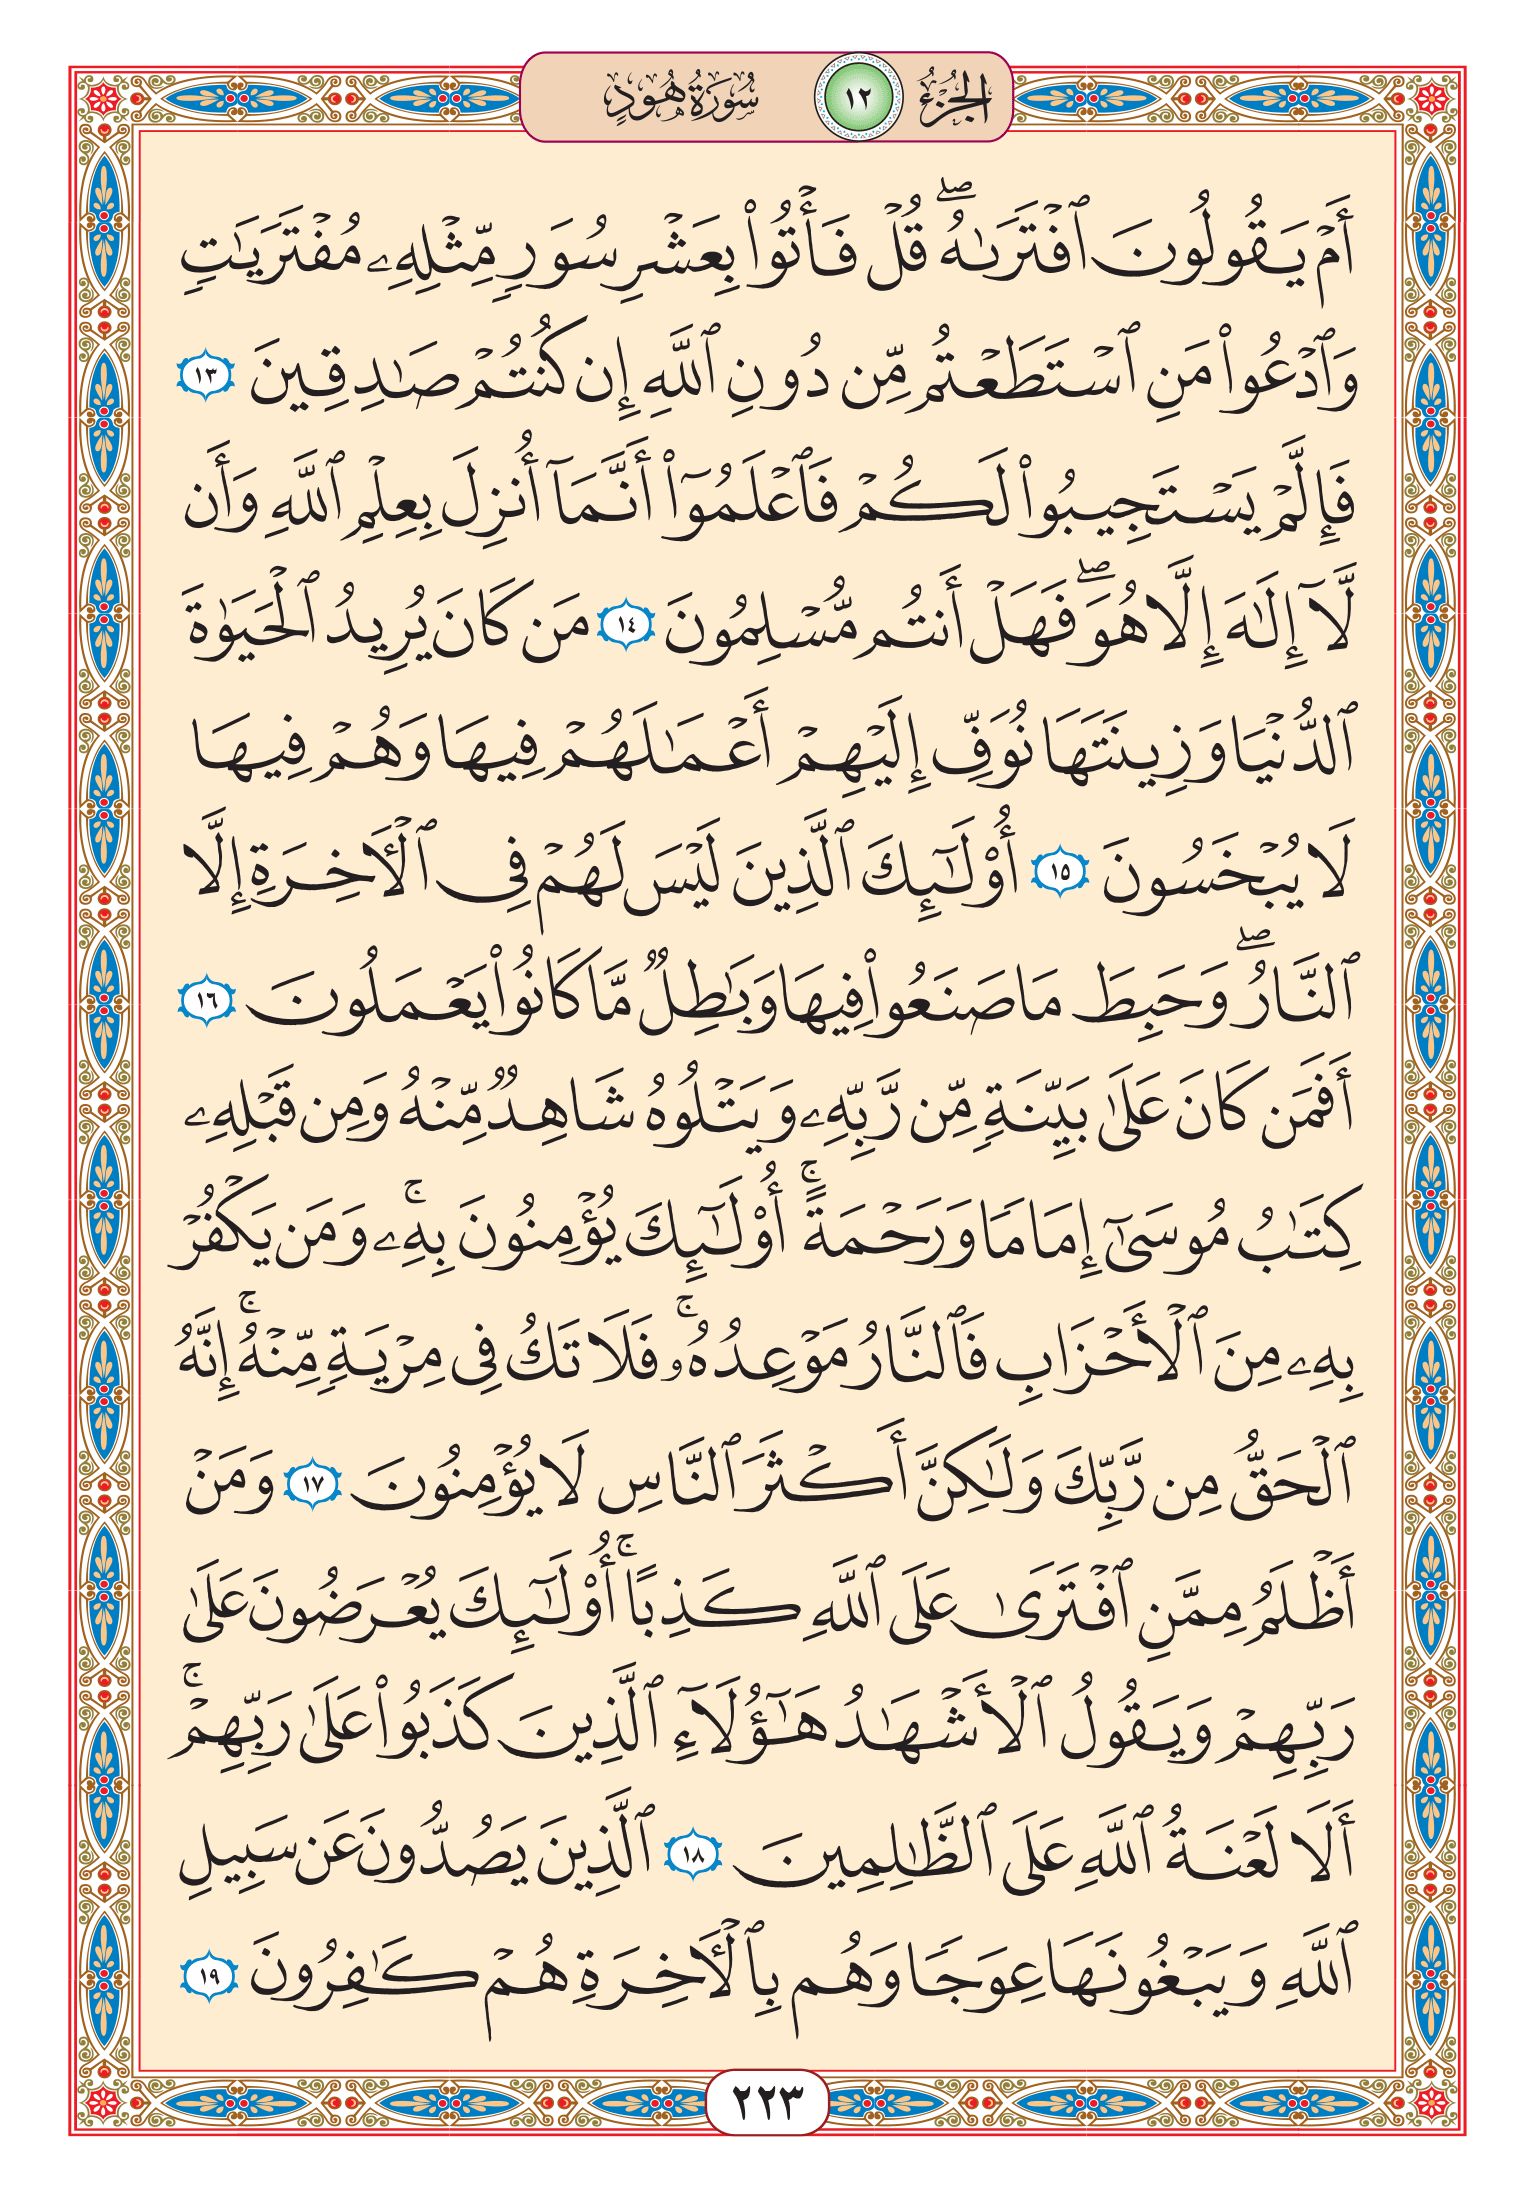 الجزء ١٢ سورة هود
أَمۡ يَقُولُونَ ٱفۡتَرَىٰهُۖ قُلۡ فَأۡتُواْ بِعَشۡرِ سُوَرٖ مِّثۡلِهِۦ مُفۡتَرَيَٰتٖ
وَٱدۡعُواْ مَنِ ٱسۡتَطَعۡتُم مِّن دُونِ ٱللَّهِ إِن كُنتُمۡ صَٰدِقِينَ ١٣
فَإِلَّمۡ يَسۡتَجِيبُواْ لَكُمۡ فَٱعۡلَمُوٓاْ أَنَّمَآ أُنزِلَ بِعِلۡمِ ٱللَّهِ وَأَن
لَّآ إِلَٰهَ إِلَّا هُوَۖ فَهَلۡ أَنتُم مُّسۡلِمُونَ ١٤ مَن كَانَ يُرِيدُ ٱلۡحَيَوٰةَ
ٱلدُّنۡيَا وَزِينَتَهَا نُوَفِّ إِلَيۡهِمۡ أَعۡمَٰلَهُمۡ فِيهَا وَهُمۡ فِيهَا
لَا يُبۡخَسُونَ ١٥ أُوْلَٰٓئِكَ ٱلَّذِينَ لَيۡسَ لَهُمۡ فِي ٱلۡأٓخِرَةِ إِلَّا
ٱلنَّارُۖ وَحَبِطَ مَا صَنَعُواْ فِيهَا وَبَٰطِلٞ مَّا كَانُواْ يَعۡمَلُونَ ١٦
أَفَمَن كَانَ عَلَىٰ بَيِّنَةٖ مِّن رَّبِّهِۦ وَيَتۡلُوهُ شَاهِدٞ مِّنۡهُ وَمِن قَبۡلِهِۦ
كِتَٰبُ مُوسَىٰٓ إِمَامٗا وَرَحۡمَةًۚ أُوْلَٰٓئِكَ يُؤۡمِنُونَ بِهِۦۚ وَمَن يَكۡفُرۡ
بِهِۦ مِنَ ٱلۡأَحۡزَابِ فَٱلنَّارُ مَوۡعِدُهُۥۚ فَلَا تَكُ فِي مِرۡيَةٖ مِّنۡهُۚ إِنَّهُ
ٱلۡحَقُّ مِن رَّبِّكَ وَلَٰكِنَّ أَكۡثَرَ ٱلنَّاسِ لَا يُؤۡمِنُونَ ١٧ وَمَنۡ
أَظۡلَمُ مِمَّنِ ٱفۡتَرَىٰ عَلَى ٱللَّهِ كَذِبًاۚ أُوْلَٰٓئِكَ يُعۡرَضُونَ عَلَىٰ
رَبِّهِمۡ وَيَقُولُ ٱلۡأَشۡهَٰدُ هَٰٓؤُلَآءِ ٱلَّذِينَ كَذَبُواْ عَلَىٰ رَبِّهِمۡۚ
أَلَا لَعۡنَةُ ٱللَّهِ عَلَى ٱلظَّٰلِمِينَ ١٨ ٱلَّذِينَ يَصُدُّونَ عَن سَبِيلِ
ٱللَّهِ وَيَبۡغُونَهَا عِوَجٗا وَهُم بِٱلۡأٓخِرَةِ هُمۡ كَٰفِرُونَ ١٩
٢٢٣